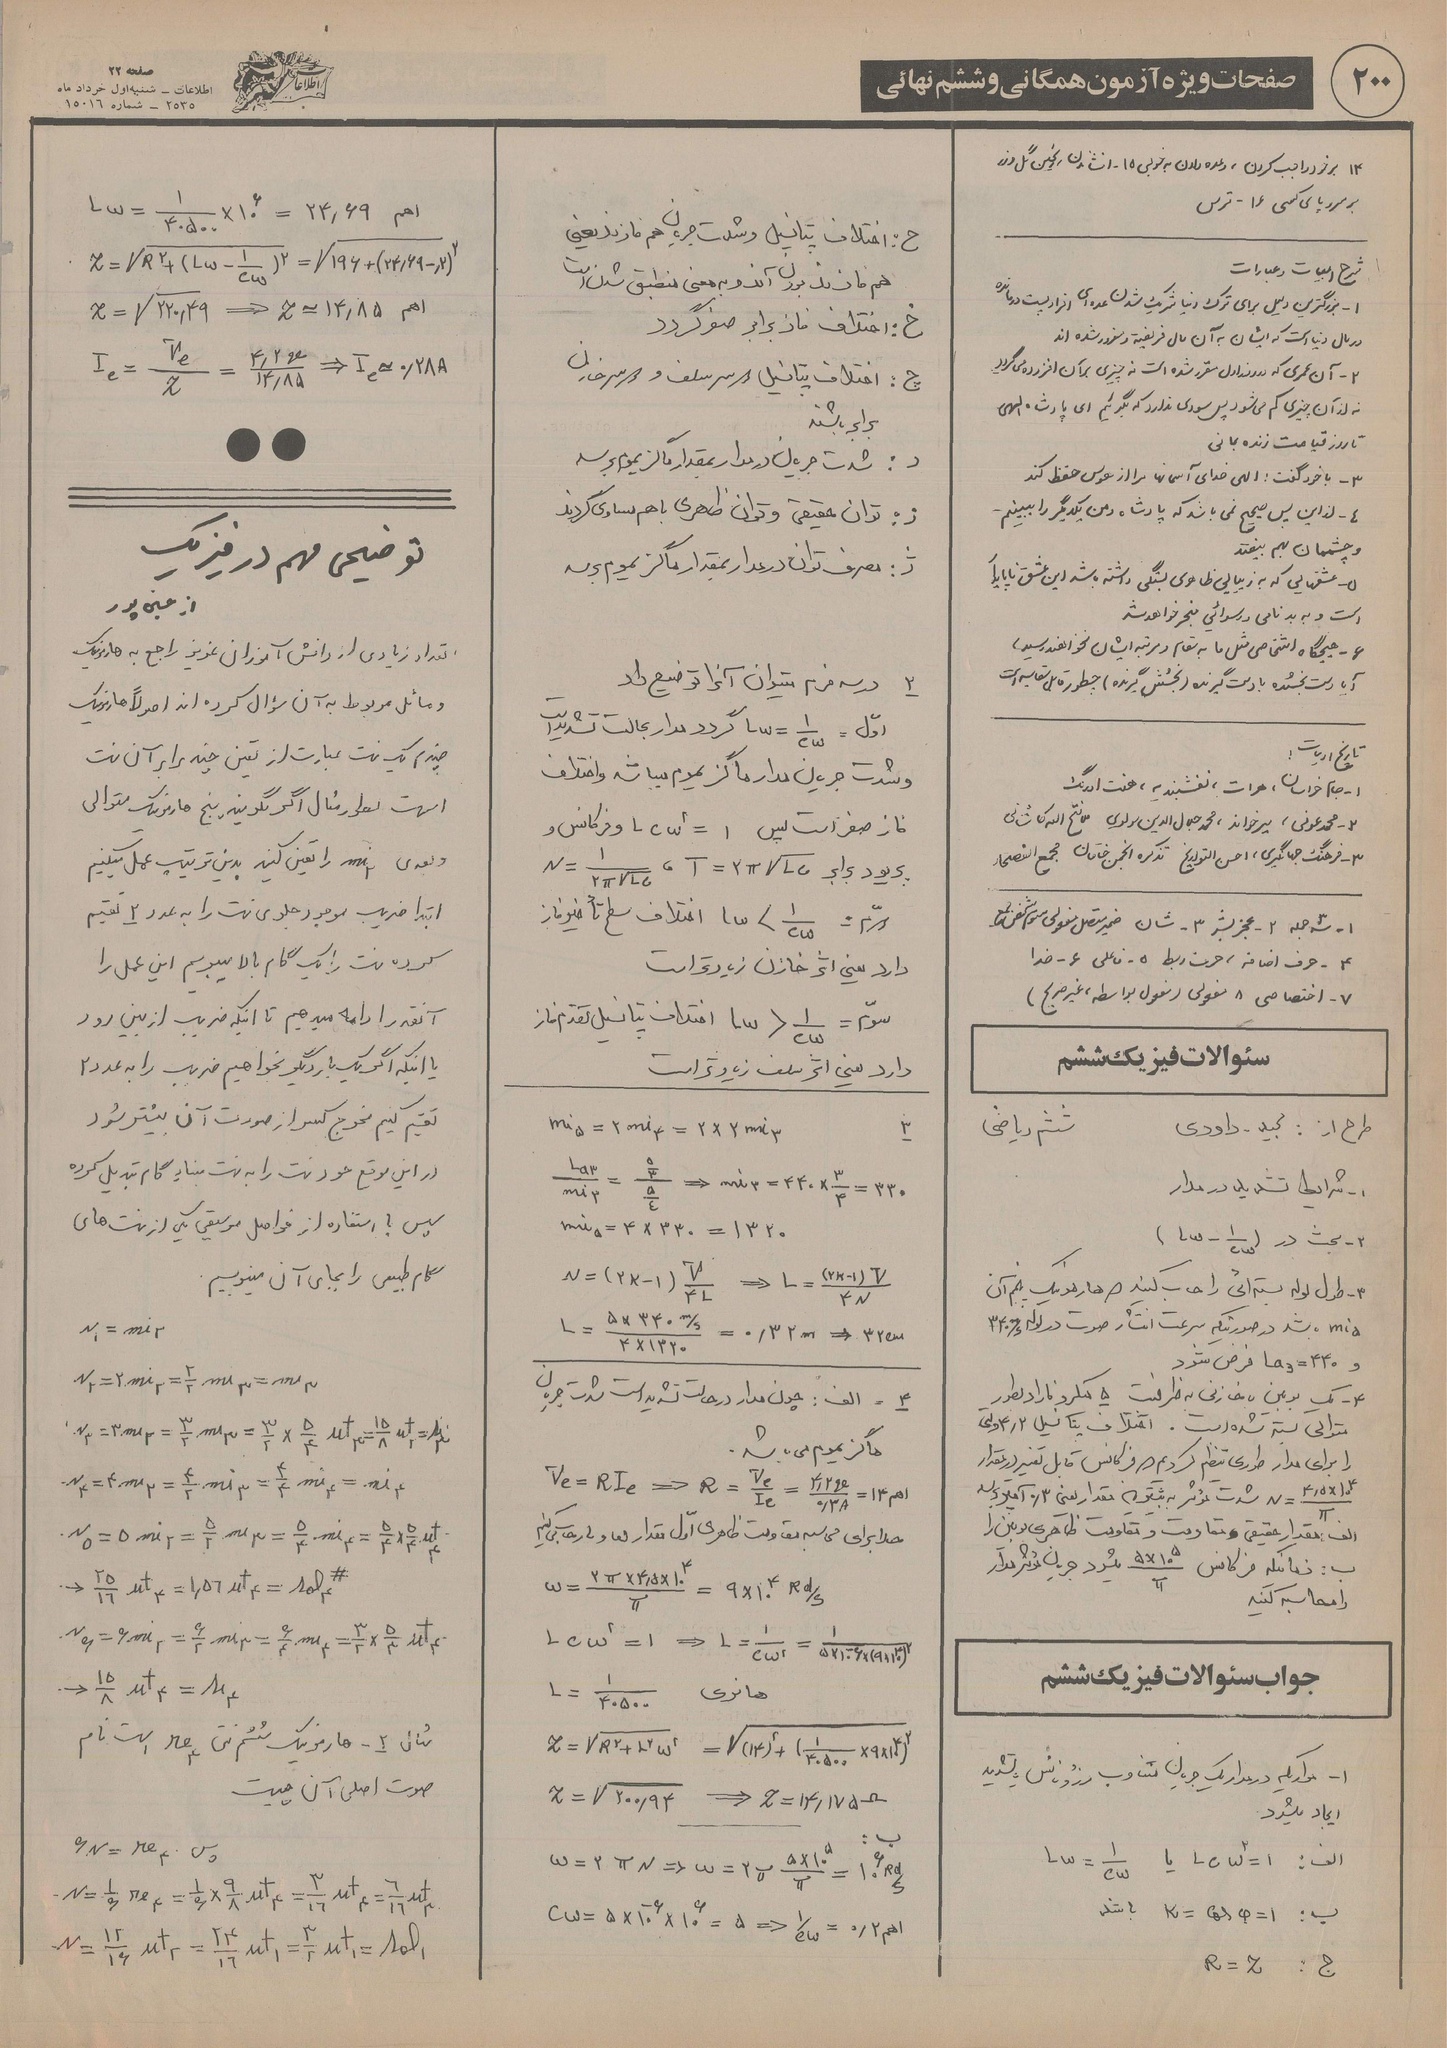 ۲۰۰
صفحات ویژه آزمون همگانی و ششم نهائی
صفحه ۲۲
اطلاعات ـ شنبه اول خرداد ماه
۲۵۳۵ ـ شماره ۱۵۰۱۶
۱۴ بر خود واجب کردن، وعده دادن به خوبی ۱۵-
بر سر و پای کسی ۱۶- ترس
شرح ابیات و عبارات
۱- بزرگترین دلیل برای ترک دنیا شریک شدن عده‌ای
در مال دنیا است که ایشان به آن مال فریفته و مغرور شده اند
۲- آن عمری که در روز اول مقرر شده است نه چیزی بر آن افزوده می‌گردد
نه از آن چیزی کم می‌شود پس سودی ندارد که بگوئیم ای پادشاه الهی
تا روز قیامت زنده بمانی
۳- با خود گفت: الهی خدای آسمانها مرا از عوس حفظ کند
٤- از این پس صحیح نمی باشد که پادشاه و من یکدیگر را ببینیم -
و چشممان بهم بیفتد
۵- عشقهایی که به زیبایی ظاهری بستگی داشته باشد این عشق ناپایدار
است و به بدنامی و رسوائی منجر خواهد شد
۶- هیچگاه اشخاصی مثل ما به مقام و مرتبه ایشان نخواهند رسید،
آیا دست بخشنده با دست گیرنده (بخشش گیرنده) چطور قابل مقایسه است
تاریخ ادبیات:
۱- جام، خراسان، هرات، نقشبندیه، هفت اورنگ
۲- محمد عوفی، میرخواند، محمد جلال الدین مولوی ملا فتح الله کاشانی
۳- فرهنگ جهانگیری، احسن التواریخ تذکره انجمن خاقان مجمع الفصحا
۱- سه جمله ۲- عجز بشر ۳- شان ضمیر متصل مفعولی
۴- حرف اضافه، حرف ربط ۵- فاعلی ۶- خدا
۷- اختصاصی ۸ مفعولی (مفعول بواسطه، غیر صریح)
سئوالات فیزیک ششم
طرح از: مجید - داودی ششم ریاضی
۱- شرایط تشدید در مدار
۲- بحث در (Lω - ۱/cω)
۳- طول لوله بسته ائی را حساب کنید که هارمونیک پنجم آن
mi۵ باشد در صورتیکه سرعت انتشار صوت در لوله ۳۴۰ m/s
و la۳=۴۴۰ فرض شود
۴- یک بوبین با خازنی به ظرفیت ۵ میکروفاراد بطور
متوالی بسته شده است. اختلاف پتانسیل ۴/۲ ولتی
را برای مدار طوری تنظیم کردیم که فرکانس قابل تغییر در مقدار
N = ۴/۵×۱۰⁴/π شدت مؤثر به بیشترین مقدار یعنی ۰/۳ آمپر برسد
الف: مقدار حقیقی مقاومت و مقاومت ظاهری بوبین را
ب: زمانیکه فرکانس ۵×۱۰⁵/π میشود جریان مؤثر مدار
را محاسبه کنید
جواب سئوالات فیزیک ششم
۱- مواردیکه در مدار یک جریان متناوب رزونانس یا تشدید
ایجاد میشود.
الف: LCω²=۱ یا Lω = ۱/cω
ب: K = cos φ = ۱ باشد
ج: R = Z
ح: اختلاف پتانسیل و شدت جریان هم فاز ند یعنی
هم فاز شدن بودن آندو به معنی منطبق شدن است
خ: اختلاف فاز برابر صفر گردد
چ: اختلاف پتانسیل دو سر سلف و دو سر خازن
برابر باشند
د: شدت جریان در مدار بمقدار ماگزیموم برسد
ز: توان حقیقی و توان ظاهری باهم مساوی گردند
ژ: مصرف توان در مدار بمقدار ماگزیموم برسد
۲ در سه فرم میتوان آنرا توضیح داد
اوّل = Lω = ۱/cω گردد مدار بحالت تشدید است
و شدت جریان مدار ماگزیموم میباشد و اختلاف
فاز صفر است پس LCω² = ۱ و فرکانس و
پریود برابر T = ۲π√LC و N = ۱/۲π√LC
دوّم = Lω < ۱/cω اختلاف سطح تأخیر فاز
دارد یعنی اثر خازن زیادتر است
سوّم = Lω > ۱/cω اختلاف پتانسیل تقدم فاز
دارد یعنی اثر سلف زیادتر است
۳ mi۵ = ۲mi۴ = ۲×۲mi۳
La۳/mi۳ = (۵/۳)/(۵/۴) ⇒ mi۳ = ۴۴۰×۳/۴ = ۳۳۰
mi۵ = ۴×۳۳۰ = ۱۳۲۰
N = (۲K-۱) V/۴L ⇒ L = (۲K-۱)V/۴N
L = ۵×۳۴۰ m/s / ۴×۱۳۲۰ = ۰/۳۲m ⇒ ۳۲cm
۴ = الف: چون مدار در حالت تشدید است شدت جریان
ماگزیموم می باشد.
Ve = RIe ⇒ R = Ve/Ie = ۴/۲ve / ۰/۳A = ۱۴ اهم
حال برای محاسبه مقاومت ظاهری اوّل مقدار ω و L را حساب می‌کنیم
ω = ۲π×۴/۵×۱۰⁴/π = ۹×۱۰⁴ Rd/s
LCω² = ۱ ⇒ L = ۱/cω² = ۱/۵×۱۰⁻⁶×(۹×۱۰⁴)²
L = ۱/۴۰۵۰۰ هانری
Z = √R²+L²ω² = √(۱۴)²+(۱/۴۰۵۰۰ ×۹×۱۰⁴)²
Z = √۲۰۰/۹۴ ⇒ Z = ۱۴/۱۷۵Ω
ب:
ω = ۲πN ⇒ ω = ۲π ۵×۱۰⁵/π = ۱۰⁶ Rd/s
Cω = ۵×۱۰⁻⁶×۱۰⁶ = ۵ ⇒ ۱/cω = ۰/۲ اهم
Lω = ۱/۴۰۵۰۰ ×۱۰⁶ = ۲۴/۶۹ اهم
Z = √R²+(Lω - ۱/cω)² = √۱۹۶+(۲۴/۶۹-۰/۲)²
Z = √۲۲۰/۴۹ ⇒ Z ≃ ۱۴/۸۵ اهم
Ie = Ve/Z = ۴/۲ve / ۱۴/۸۵ ⇒ Ie ≃ ۰/۲۸A
توضیحی مهم در فیزیک
تعداد زیادی از دانش آموزان عزیز راجع به هارمونیک
و مسائل مربوط به آن سؤال کرده اند اصولاً هارمونیک
چندم یک نت عبارت از تعیین چند برابر آن نت
است بطور مثال اگر بگویند پنج هارمونیک متوالی
و بعدی mi۲ را تعیین کنید بدین ترتیب عمل میکنیم
ابتدا ضریب موجود جلوی نت را به عدد ۲ تقسیم
کرده نت را یک گام بالا میبریم این عمل را
آنقدر ادامه میدهیم تا اینکه ضریب از بین رود
یا اینکه اگر یک بار دیگر بخواهیم ضریب را به عدد ۲
تقسیم کنیم مخرج کسر از صورت آن بیشتر شود
در این موقع خود نت را به نت مبنای گام تبدیل کرده
سپس با استفاده از فواصل موسیقی یکی از نت های
گام طبیعی را بجای آن مینویسیم.
N۱ = mi۲
N۲ = ۲mi۲ = ۲/۲ mi۳ = mi۳
N۳ = ۳mi۲ = ۳/۲ mi۳ = ۳/۲ × ۵/۴ ut۳ = ۱۵/۸ ut۳ = si۳
N۴ = ۴mi۲ = ۴/۲ mi۳ = ۴/۴ mi۴ = mi۴
N۵ = ۵mi۲ = ۵/۲ mi۳ = ۵/۴ mi۴ = ۵/۴×۵/۴ ut۴
→ ۲۵/۱۶ ut۴ = ۱,۵۶ ut۴ = sol۴#
N۶ = ۶mi۲ = ۶/۲ mi۳ = ۶/۴ mi۴ = ۳/۲×۵/۴ ut۴
→ ۱۵/۸ ut۴ = si۴
مثال ۲ - هارمونیک ششم نتی re۴ است نام
صوت اصلی آن چیست
۶N = re۴ پس
N = ۱/۶ re۴ = ۱/۶ × ۹/۸ ut۴ = ۳/۱۶ ut۴ = ۶/۱۶ ut۳
N = ۱۲/۱۶ ut۲ = ۲۴/۱۶ ut۱ = ۳/۲ ut۱ = sol۱